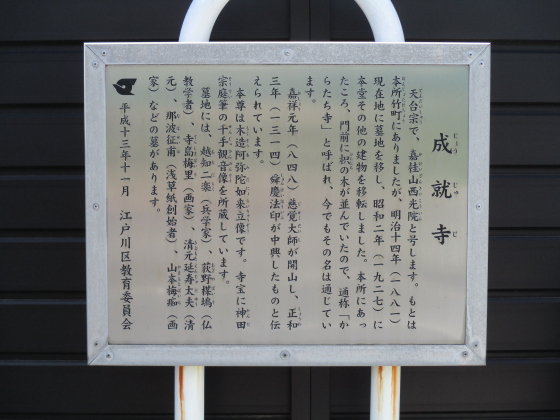 成就寺
じょうじゅじ
天台宗で、嘉桂山西光院と号します。もとは
本所竹町にありましたが、明治十四年（一八八一）
現在地に墓地を移し、昭和二年（一九二七）に
本堂その他の建物を移転しました。本所にあっ
たころ、門前に枳の木が並んでいたので、通称「か
らたち寺」と呼ばれ、今でもその名は通じてい
ます。
嘉祥元年（八四八）慈覚大師が開山し、正和
三年（一三一四）舜慶法印が中興したものと伝
えられています。
本尊は木造阿弥陀如来立像です。寺宝に神田
宗庭筆の千手観音像を所蔵しています。
墓地には、越知二楽（兵学家）、荻野楳塢（仏
教学者）、寺島梅里（画家）、清元延寿太夫（清
元）、那波征甫（浅草紙創始者）、山本梅痴（画
家）などの墓があります。
平成十三年十一月　江戸川区教育委員会